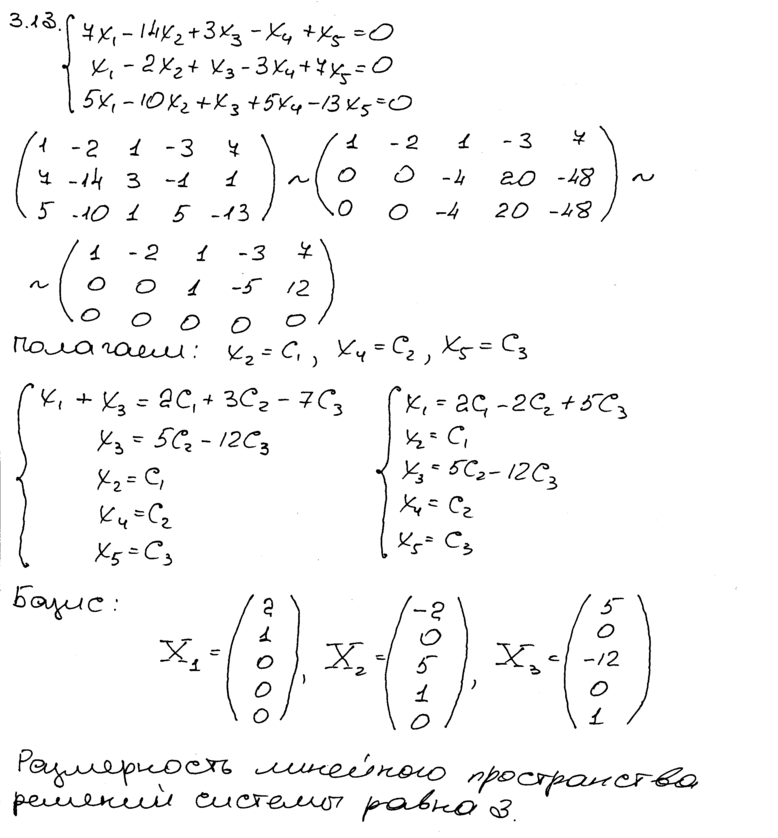 3.13. { 7x₁ - 14x₂ + 3x₃ - x₄ + x₅ = 0
x₁ - 2x₂ + x₃ - 3x₄ + 7x₅ = 0
5x₁ - 10x₂ + x₃ + 5x₄ - 13x₅ = 0
( 1 -2 1 -3 7 ) ~ ( 1 -2 1 -3 7 ) ~
( 7 -14 3 -1 1 ) ( 0 0 -4 20 -48 )
( 5 -10 1 5 -13 ) ( 0 0 -4 20 -48 )
~ ( 1 -2 1 -3 7 )
( 0 0 1 -5 12 )
( 0 0 0 0 0 )
Полагаем: x₂ = C₁, x₄ = C₂, x₅ = C₃
{ x₁ + x₃ = 2C₁ + 3C₂ - 7C₃
x₃ = 5C₂ - 12C₃
x₂ = C₁
x₄ = C₂
x₅ = C₃
{ x₁ = 2C₁ - 2C₂ + 5C₃
x₂ = C₁
x₃ = 5C₂ - 12C₃
x₄ = C₂
x₅ = C₃
Базис:
X₁ = ( 2 1 0 0 0 ), X₂ = ( -2 0 5 1 0 ), X₃ = ( 5 0 -12 0 1 )
Размерность линейного пространства
решений системы равна 3.